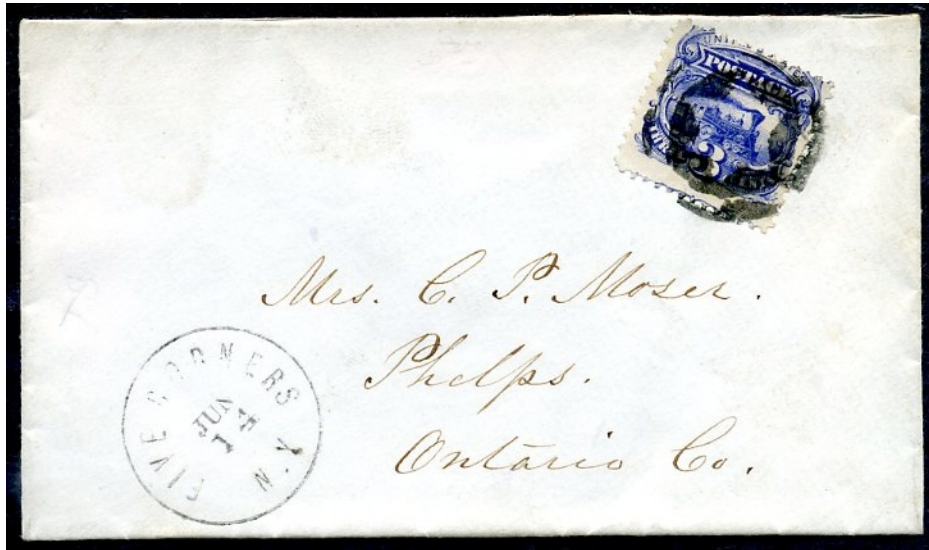 POSTAGE
3
Mrs. C. P. Moser.
Phelps.
Ontario Co.
FIVE CORNERS N.Y
JUN